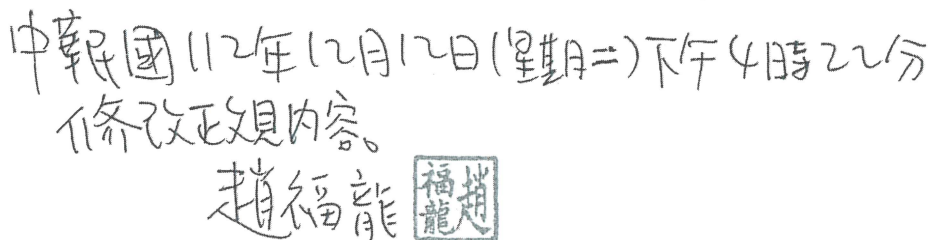 中華民國112年12月12日(星期二)下午4時22分
修改政見內容。
趙福龍
趙福龍